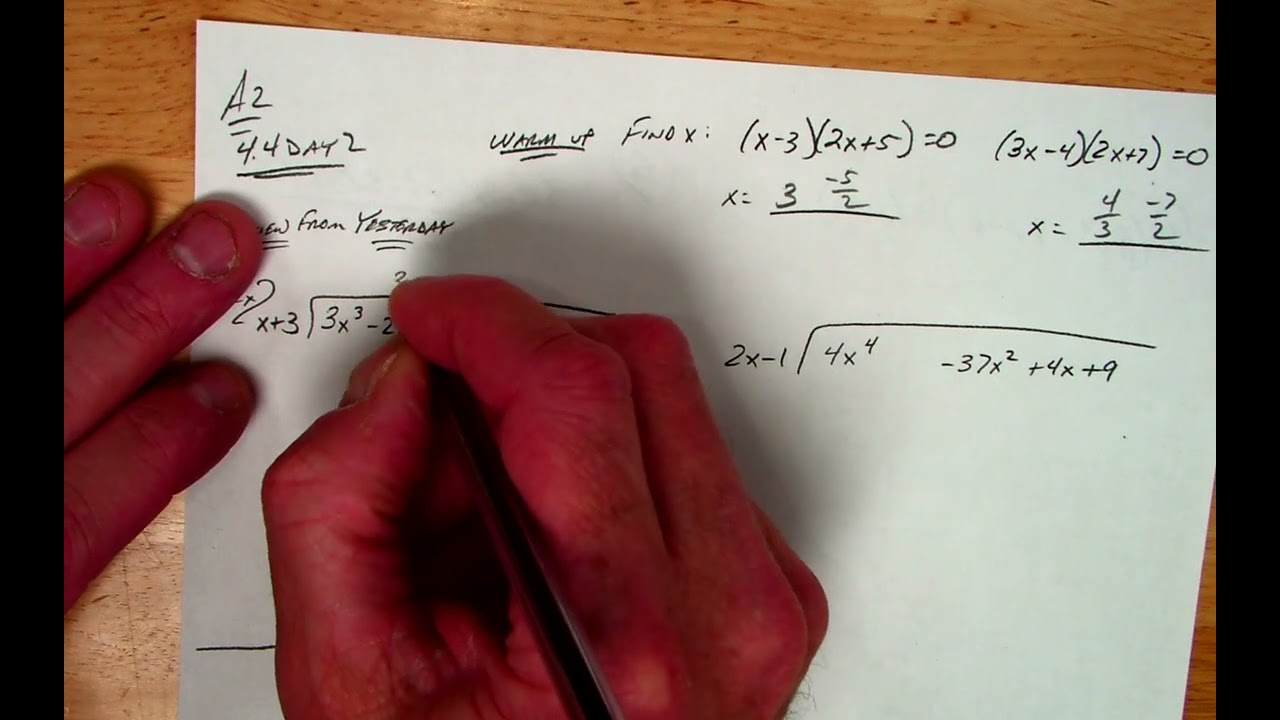 A2
4.4 DAY 2
WARM UP FIND X: (x-3)(2x+5)=0 (3x-4)(2x+7)=0
x= 3 -5/2
x= 4/3 -7/2
FROM YESTERDAY
x+3 3x³ -2
2x-1 4x⁴ -37x² +4x+9